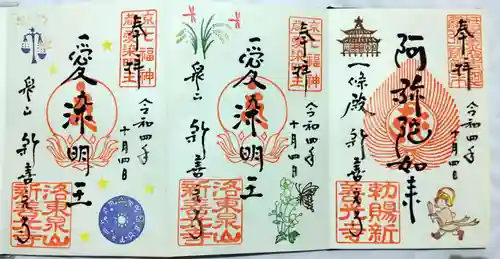 奉拝
令和四年
十月四日
阿彌陀如来
一條殿
新善光寺
勅賜新
善光寺
奉拝
七福神
愛染明王
令和四年
十月四日
愛染明王
泉山
新善光寺
洛東泉山
新善光寺
奉拝
七福神
愛染明王
令和四年
十月四日
愛染明王
泉山
新善光寺
洛東泉山
新善光寺